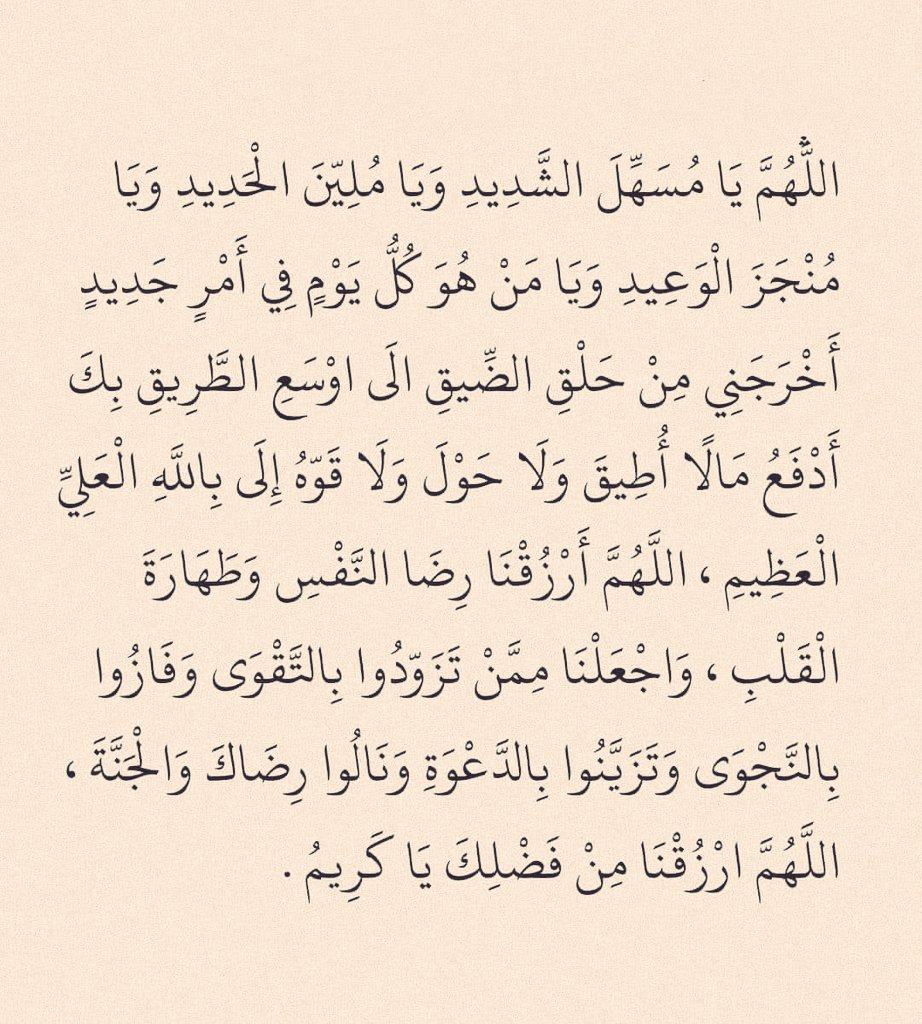 اللَّهُمَّ يَا مُسَهِّلَ الشَّدِيدِ وَيَا مُلِيّنَ الْحَدِيدِ وَيَا
مُنْجَزَ الْوَعِيدِ وَيَا مَنْ هُوَ كُلُّ يَوْمٍ فِي أَمْرٍ جَدِيدٍ
أَخْرَجَنِي مِنْ حَلْقِ الضِّيقِ الَى اوْسَعِ الطَّرِيقِ بِكَ
أَدْفَعُ مَالًا أُطِيقَ وَلَا حَوْلَ وَلَا قَوّهُ إِلَى بِاللَّهِ الْعَلِيِّ
الْعَظِيمِ ، اللَّهُمَّ أَرْزُقْنَا رِضَا النَّفْسِ وَطَهَارَةَ
الْقَلْبِ ، وَاجْعَلْنَا مِمَّنْ تَزَوّدُوا بِالتَّقْوَى وَفَازُوا
بِالنَّجْوَى وَتَزَيَّنُوا بِالدَّعْوَةِ وَنَالُوا رِضَاكَ وَالْجَنَّةَ ،
اللَّهُمَّ ارْزُقْنَا مِنْ فَضْلِكَ يَا كَرِيمُ .